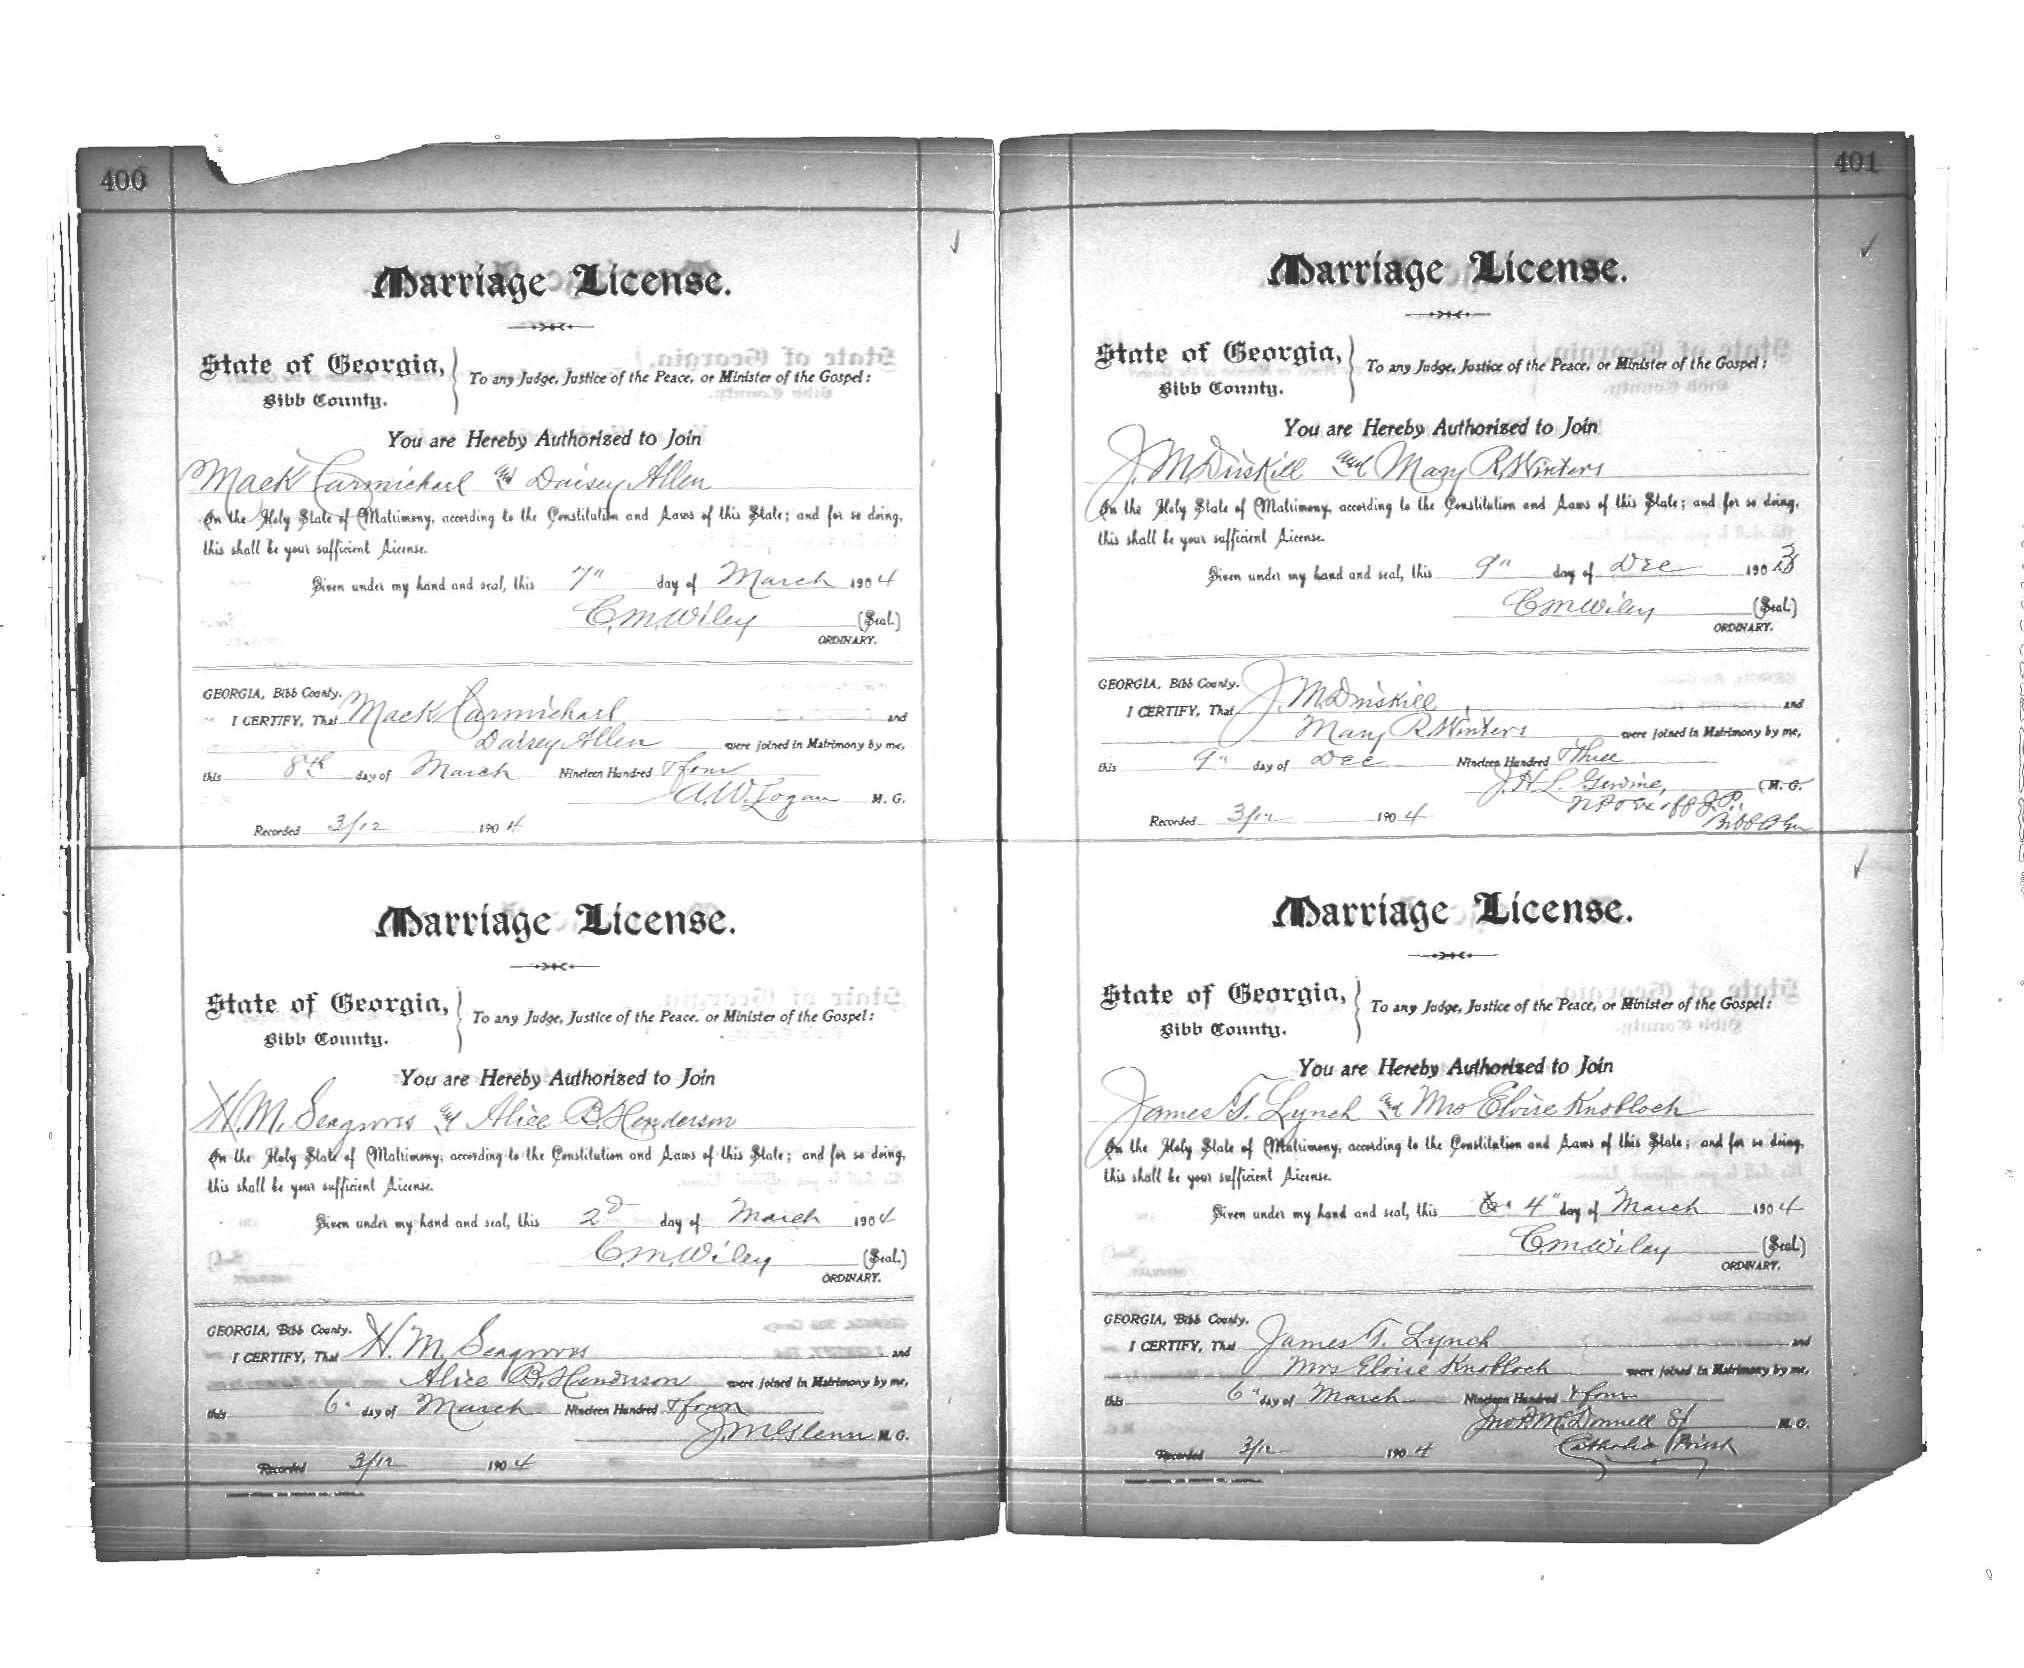 400
Marriage License.
State of Georgia,
Bibb County.
To any Judge, Justice of the Peace, or Minister of the Gospel:
You are Hereby Authorized to Join
Mack Carmichael and Daisey Allen
In the Holy State of Matrimony, according to the Constitution and Laws of this State; and for so doing,
this shall be your sufficient License.
Given under my hand and seal, this 7" day of March 1904
C.M. Wiley (Seal.)
ORDINARY.
GEORGIA, Bibb County.
I CERTIFY, That Mack Carmichael and
Daisey Allen were joined in Matrimony by me,
this 8th day of March Nineteen Hundred & four
A.W. Logan M. G.
Recorded 3/12 1904
Marriage License.
State of Georgia,
Bibb County.
To any Judge, Justice of the Peace, or Minister of the Gospel:
You are Hereby Authorized to Join
H. M. and Alice B. Henderson
In the Holy State of Matrimony, according to the Constitution and Laws of this State; and for so doing,
this shall be your sufficient License.
Given under my hand and seal, this 2d day of March 1904
C.M. Wiley (Seal.)
ORDINARY.
GEORGIA, Bibb County.
I CERTIFY, That H. M. and
Alice B. Henderson were joined in Matrimony by me,
this 6" day of March Nineteen Hundred & four
J. M. Glenn M. G.
Recorded 3/12 1904
401
Marriage License.
State of Georgia,
Bibb County.
To any Judge, Justice of the Peace, or Minister of the Gospel:
You are Hereby Authorized to Join
J. M. Driskill and Mary R. Winters
In the Holy State of Matrimony, according to the Constitution and Laws of this State; and for so doing,
this shall be your sufficient License.
Given under my hand and seal, this 9" day of Dec 1903
C M Wiley (Seal.)
ORDINARY.
GEORGIA, Bibb County.
I CERTIFY, That J. M. Driskill, and
Mary R. Winters were joined in Matrimony by me,
this 9" day of Dec Nineteen Hundred & Three
J. H. L. M. G.
N P & Ex off J. P.
Bibb Co Ga
Recorded 3/12 1904
Marriage License.
State of Georgia,
Bibb County.
To any Judge, Justice of the Peace, or Minister of the Gospel:
You are Hereby Authorized to Join
James T. Lynch and Mrs Eloise Knobloch
In the Holy State of Matrimony, according to the Constitution and Laws of this State; and for so doing,
this shall be your sufficient License.
Given under my hand and seal, this 4" day of March 1904
C. M Wiley (Seal.)
ORDINARY.
GEORGIA, Bibb County.
I CERTIFY, That James T. Lynch and
Mrs Eloise Knobloch were joined in Matrimony by me,
this 6" day of March Nineteen Hundred & four
Jno P. McDonnell SJ M. G.
Catholic Priest
Recorded 3/12 1904